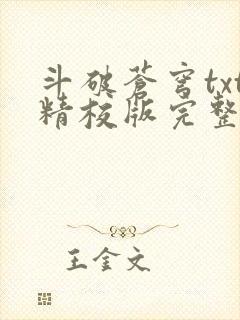 斗破苍穹txt
精校版完整
王金文